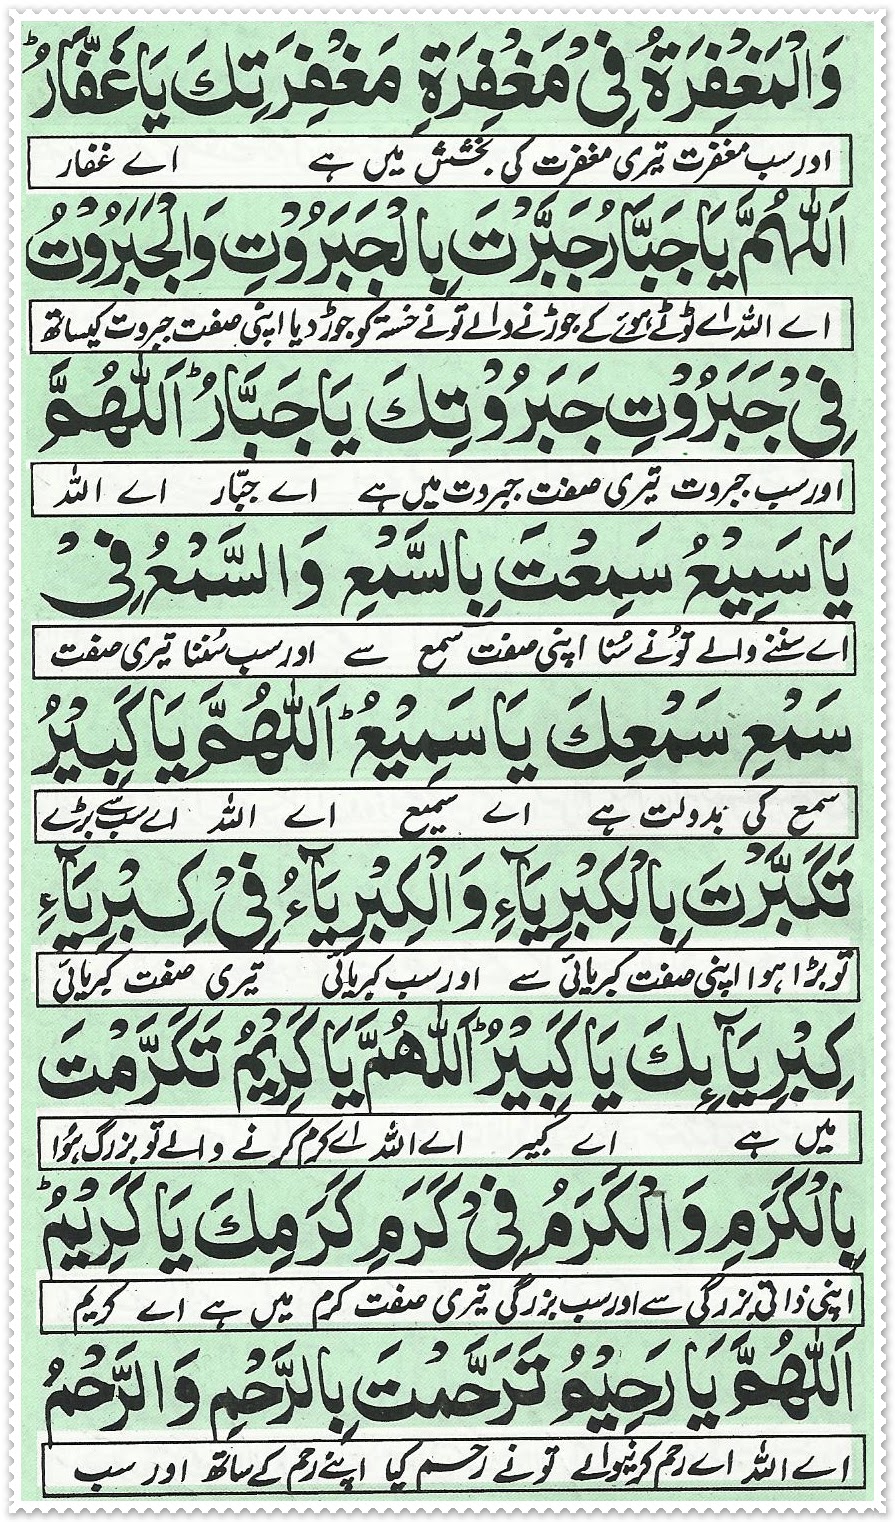 وَالْمَغْفِرَةُ فِیْ مَغْفِرَةِ مَغْفِرَتِكَ يَا غَفَّارُ ؕ
اور سب مغفرت تیری مغفرت کی بخشش میں ہے اے غفار
اَللّٰهُمَّ يَا جَبَّارُ جَبَّرْتَ بِالْجَبَرُوْتِ وَالْجَبَرُوْتُ
اے اللہ اے ٹوٹے ہوئے کے جوڑنے والے تونے خستہ کو جوڑ دیا اپنی صفت جبروت کیساتھ
فِیْ جَبَرُوْتِ جَبَرُوْتِكَ يَا جَبَّارُ ؕ اَللّٰهُمَّ
اور سب جبروت تیری صفت جبروت میں ہے اے جبّار اے اللہ
يَا سَمِيْعُ سَمِعْتَ بِالسَّمْعِ وَالسَّمْعُ فِیْ
اے سننے والے تُونے سُنا اپنی صفت سمع سے اور سب سُننا تیری صفت
سَمْعِ سَمْعِكَ يَا سَمِيْعُ ؕ اَللّٰهُمَّ يَا كَبِيْرُ
سمع کی بدولت ہے اے سمیع اے اللہ اے سب سے بڑے
تَكَبَّرْتَ بِالْكِبْرِيَآءِ وَالْكِبْرِيَآءُ فِیْ كِبْرِيَآءِ
تو بڑا ہوا اپنی صفت کبریائی سے اور سب کبریائی تیری صفت کبریائی
كِبْرِيَآئِكَ يَا كَبِيْرُ ؕ اَللّٰهُمَّ يَا كَرِيْمُ تَكَرَّمْتَ
میں ہے اے کبیر اے اللہ اے کرم کرنے والے تو بزرگ ہُوا
بِالْكَرَمِ وَالْكَرَمُ فِیْ كَرَمِ كَرَمِكَ يَا كَرِيْمُ ؕ
اپنی ذاتی بزرگی سے اور سب بزرگی تیری صفت کرم میں ہے اے کریم
اَللّٰهُمَّ يَا رَحِيْمُ تَرَحَّمْتَ بِالرَّحْمِ وَالرَّحْمُ
اے اللہ اے رحم کرنیوالے تونے رحم کیا اپنے رحم کے ساتھ اور سب